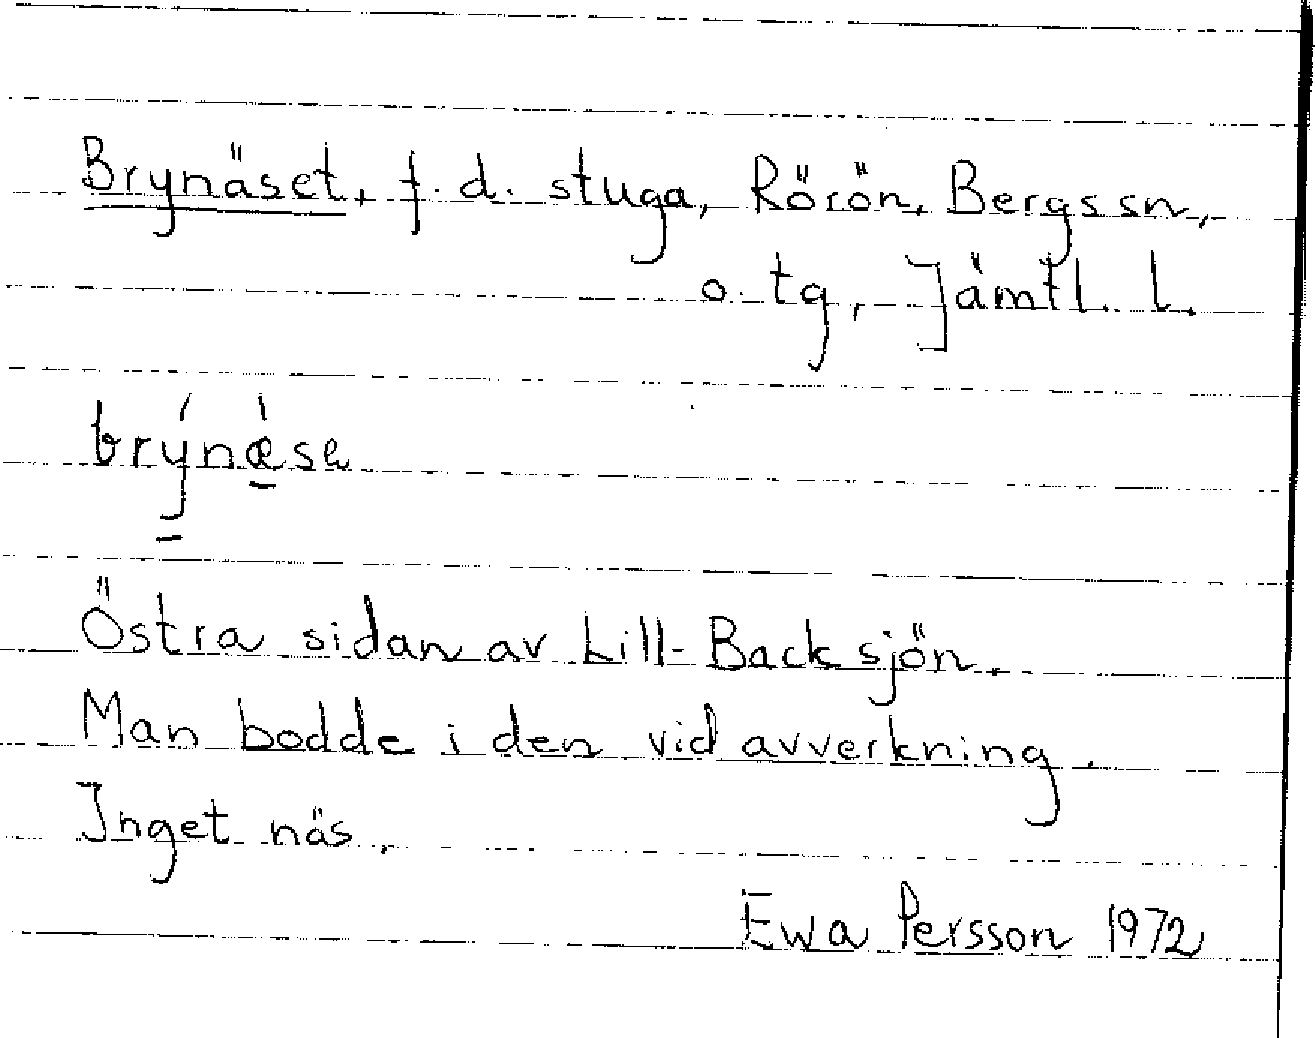 Brynäset, f. d. stuga, Rörön, Bergs sn,
o. tg, Jämtl. l.
brý̱nǽ̱sa
Östra sidan av Lill-Backsjön.
Man bodde i den vid avverkning.
Inget näs.
Ewa Persson 1972